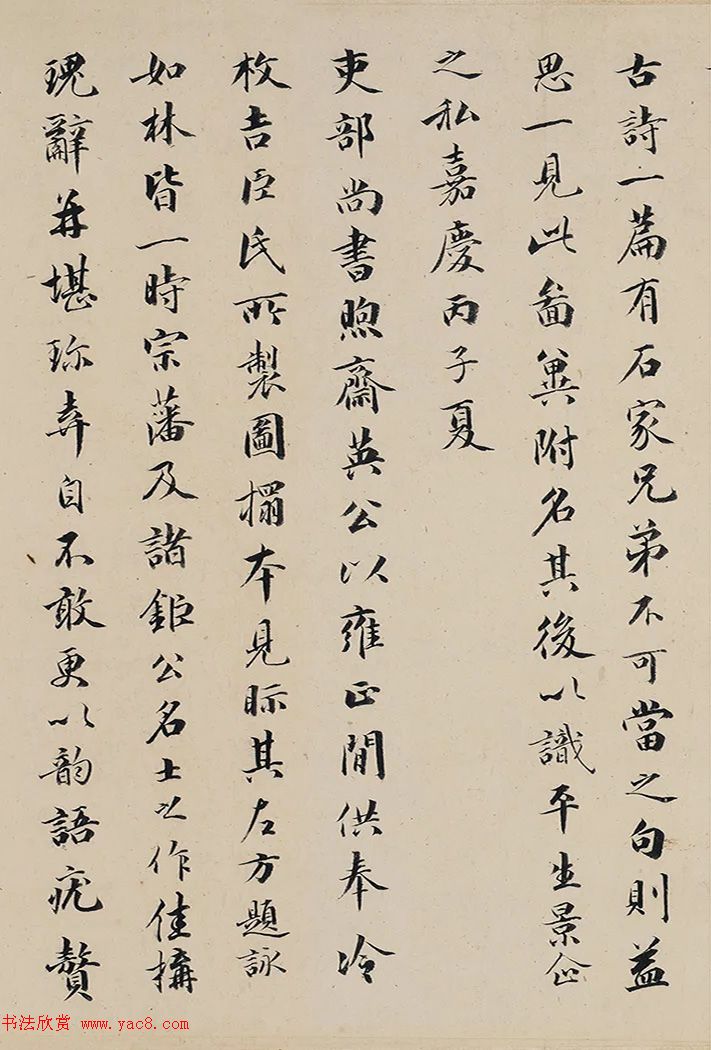 古詩一篇有石家兄弟不可當之句則益
思一見此啚冀附名其後以識平生景企
之私嘉慶丙子夏
吏部尚書煦齋英公以雍正間供奉冷
枚吉臣氏所製圖搨本見眎其左方題詠
如林皆一時宗藩及諸鉅公名士之作佳搆
瑰辭并堪珎弆自不敢更以韵語疣贅
书法欣赏 www.yac8.com